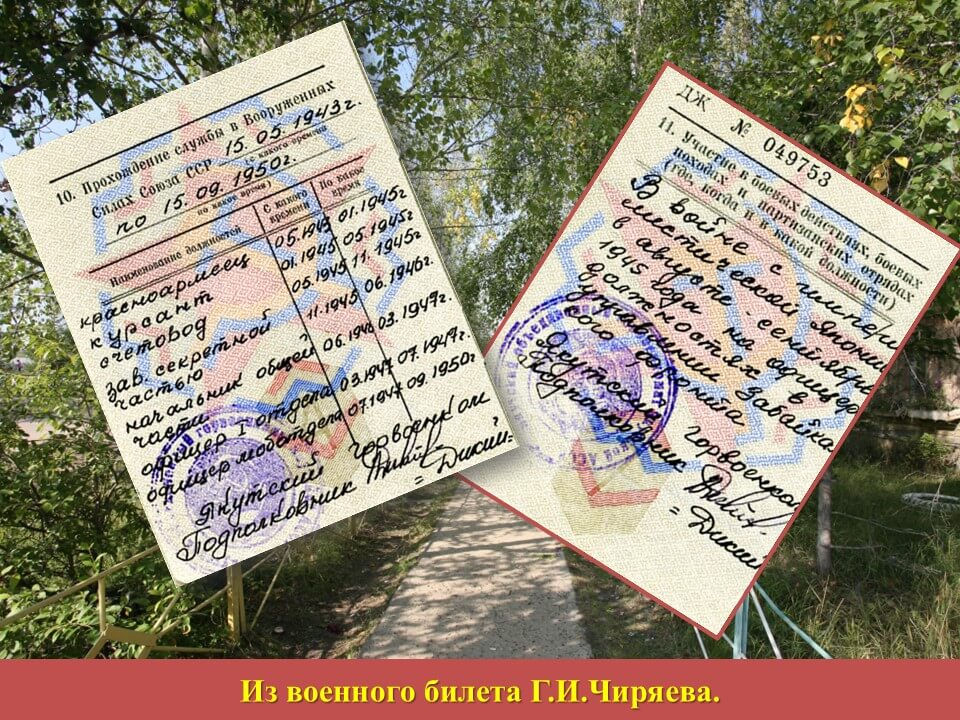 10. Прохождение службы в Вооруженных
Силах Союза ССР 15.05.1943г.
(с какого времени
по 15.09.1950г.
по какое время)
Наименование должностей
С какого времени
По какое время
красноармеец 05.1943 01.1945г
курсант 01.1945 05.1945г
счетовод 05.1945 11.1945г
зав. секретной частью 11.1945 06.1946г.
начальник общей части 06.1946 03.1947г.
офицер отдела 03.1947 07.1947г
офицер моботдела 07.1947 09.1950г
Якутский горвоенком
Подполковник
=Дикий=
ДЖ № 049753
11. Участие в боевых действиях, боевых
походах и партизанских отрядах
(где, когда и в какой должности)
В войне с импери
алистической Японии
в августе-сентябре
1945 года на офицер
должностях в
Забайкал
ого фронта
Якутский горвоенком
Подполковник
=Дикий
Из военного билета Г.И.Чиряева.